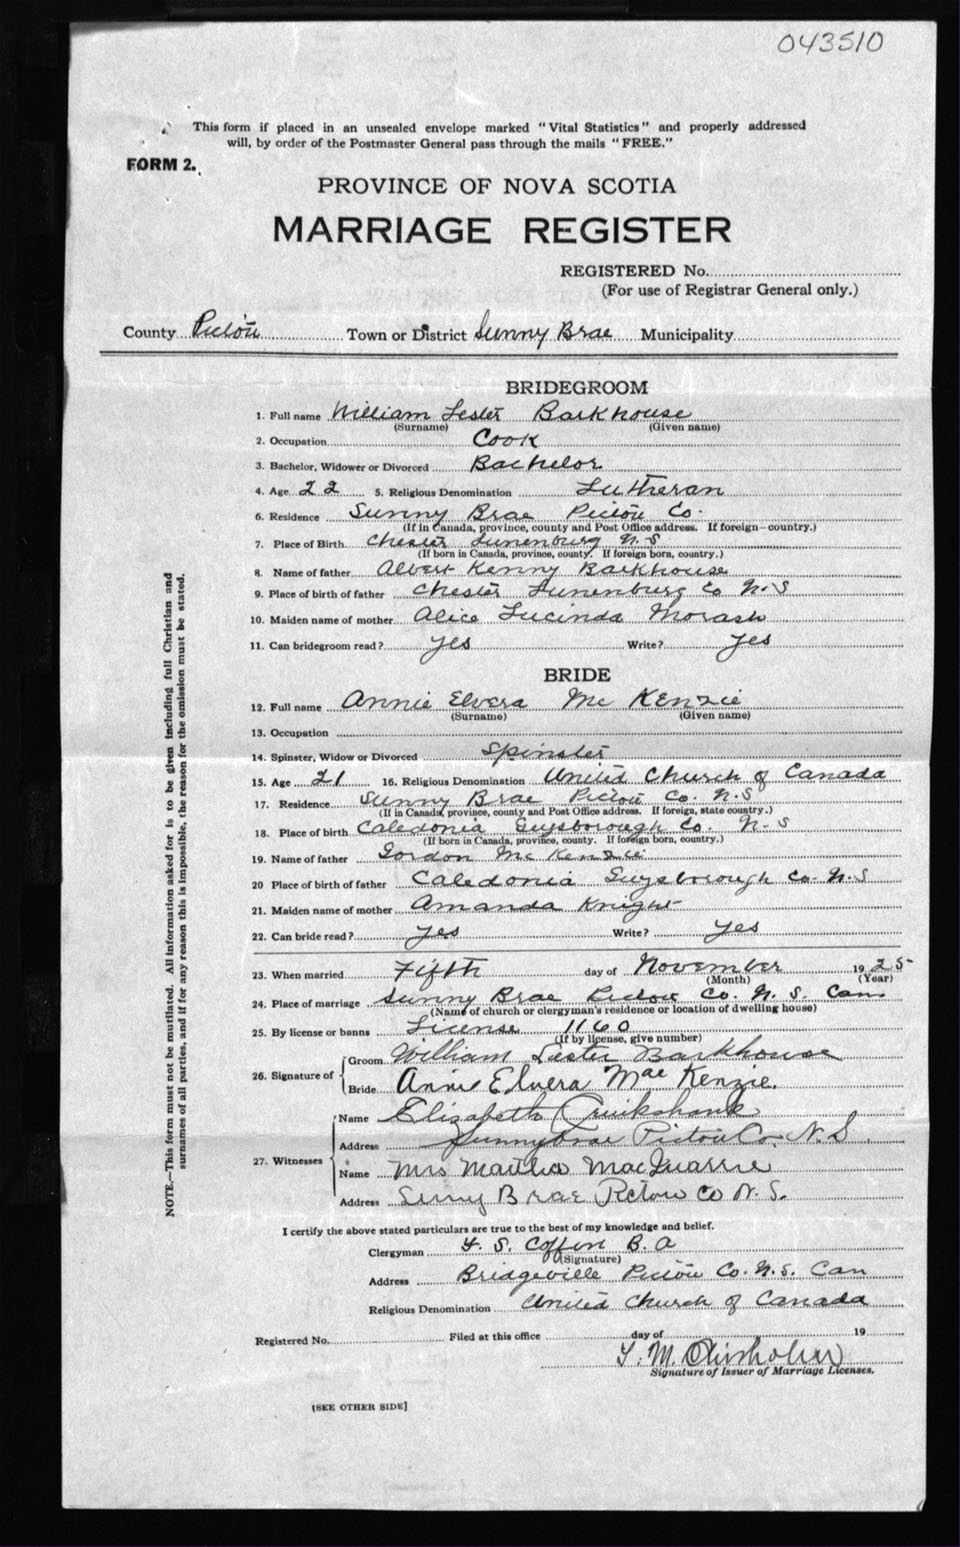 043510
This form if placed in an unsealed envelope marked "Vital Statistics" and properly addressed
will, by order of the Postmaster General pass through the mails "FREE."
FORM 2.
PROVINCE OF NOVA SCOTIA
MARRIAGE REGISTER
REGISTERED No.
(For use of Registrar General only.)
County Pictou Town or District Sunny Brae Municipality
BRIDEGROOM
1. Full name William Lester Barkhouse
(Surname) (Given name)
2. Occupation Cook
3. Bachelor, Widower or Divorced Bachelor
4. Age 22 5. Religious Denomination Lutheran
6. Residence Sunny Brae Pictou Co.
(If in Canada, province, county and Post Office address. If foreign—country.)
7. Place of Birth Chester Lunenburg N.S
(If born in Canada, province, county. If foreign born, country.)
8. Name of father Albert Kenny Barkhouse
9. Place of birth of father Chester Lunenburg Co N.S
10. Maiden name of mother Alice Lucinda Morash
11. Can bridegroom read? yes Write? yes
BRIDE
12. Full name Annie Elvera Mc Kenzie
(Surname) (Given name)
13. Occupation
14. Spinster, Widow or Divorced Spinster
15. Age 21 16. Religious Denomination United Church of Canada
17. Residence Sunny Brae Pictou Co. N.S
(If in Canada, province, county and Post Office address. If foreign, state country.)
18. Place of birth Caledonia Guysborough Co. N.S
(If born in Canada, province, county. If foreign born, country.)
19. Name of father Gordon Mc Kenzie
20 Place of birth of father Caledonia Guysborough Co. N.S
21. Maiden name of mother Amanda Knight
22. Can bride read? yes Write? yes
23. When married Fifth day of November 1925
(Month) (Year)
24. Place of marriage Sunny Brae Pictou Co. N. S. Can
(Name of church or clergyman's residence or location of dwelling house)
25. By license or banns License 1160
(If by license, give number)
26. Signature of Groom William Lester Barkhouse
Bride Annie Elvera Mac Kenzie.
27. Witnesses Name Elizabeth Cruikshank
Address Sunnybrae Pictou Co. N.S.
Name Mrs Martha MacQuarrie
Address Sunny Brae Pictou Co N.S.
I certify the above stated particulars are true to the best of my knowledge and belief.
Clergyman F. S. Coffin B. A
(Signature)
Address Bridgeville Pictou Co. N.S. Can
Religious Denomination United Church of Canada
Registered No. Filed at this office day of 19
M. Chisholm
Signature of Issuer of Marriage Licenses.
[SEE OTHER SIDE]
NOTE.—This form must not be mutilated. All information asked for is to be given including full Christian and
surnames of all parties, and if for any reason this is impossible, the reason for the omission must be stated.